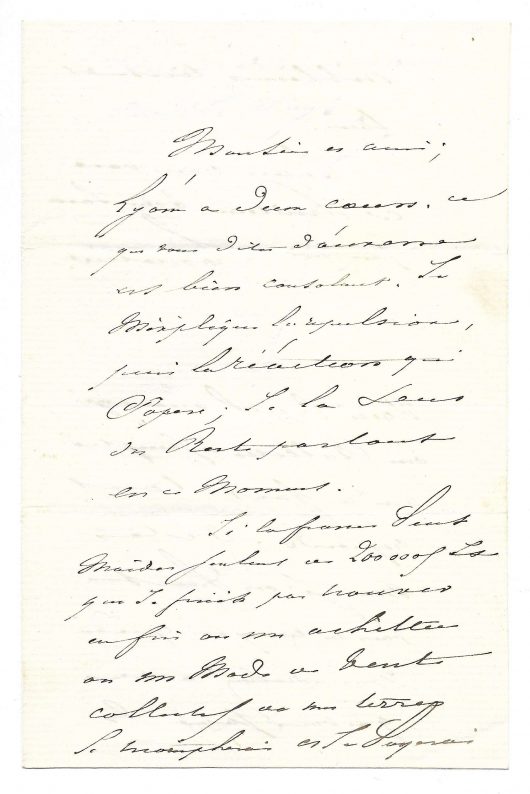 Monsieur et ami,
Lyon a deux cœurs. ce
que vous dites d'
est bien consolant. Je
m'explique la répulsion,
puis la réaction qui
s'opère; Je la sens
du Reste partout
en ce Moment.
Si la france veut
m'aider seulement de 200 000f
que Je puisse trouver
enfin ou un acheteur
ou un Mode de vente
collectif de mes terres
Je triompherai et Je payerais